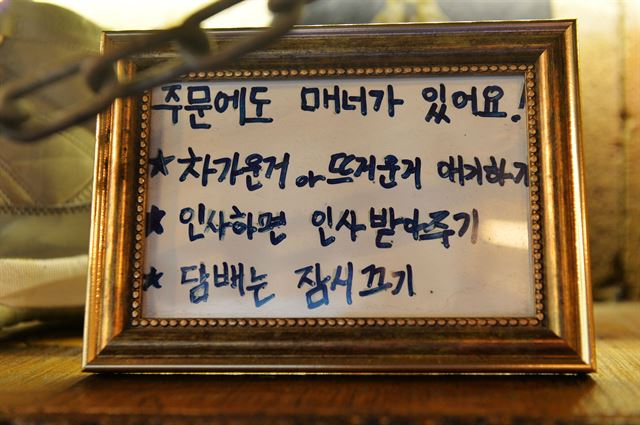 주문에도 매너가 있어요!
★ 차가운거 아 뜨거운거 얘기하기
★ 인사하면 인사 받아주기
★ 담배는 잠시 끄기